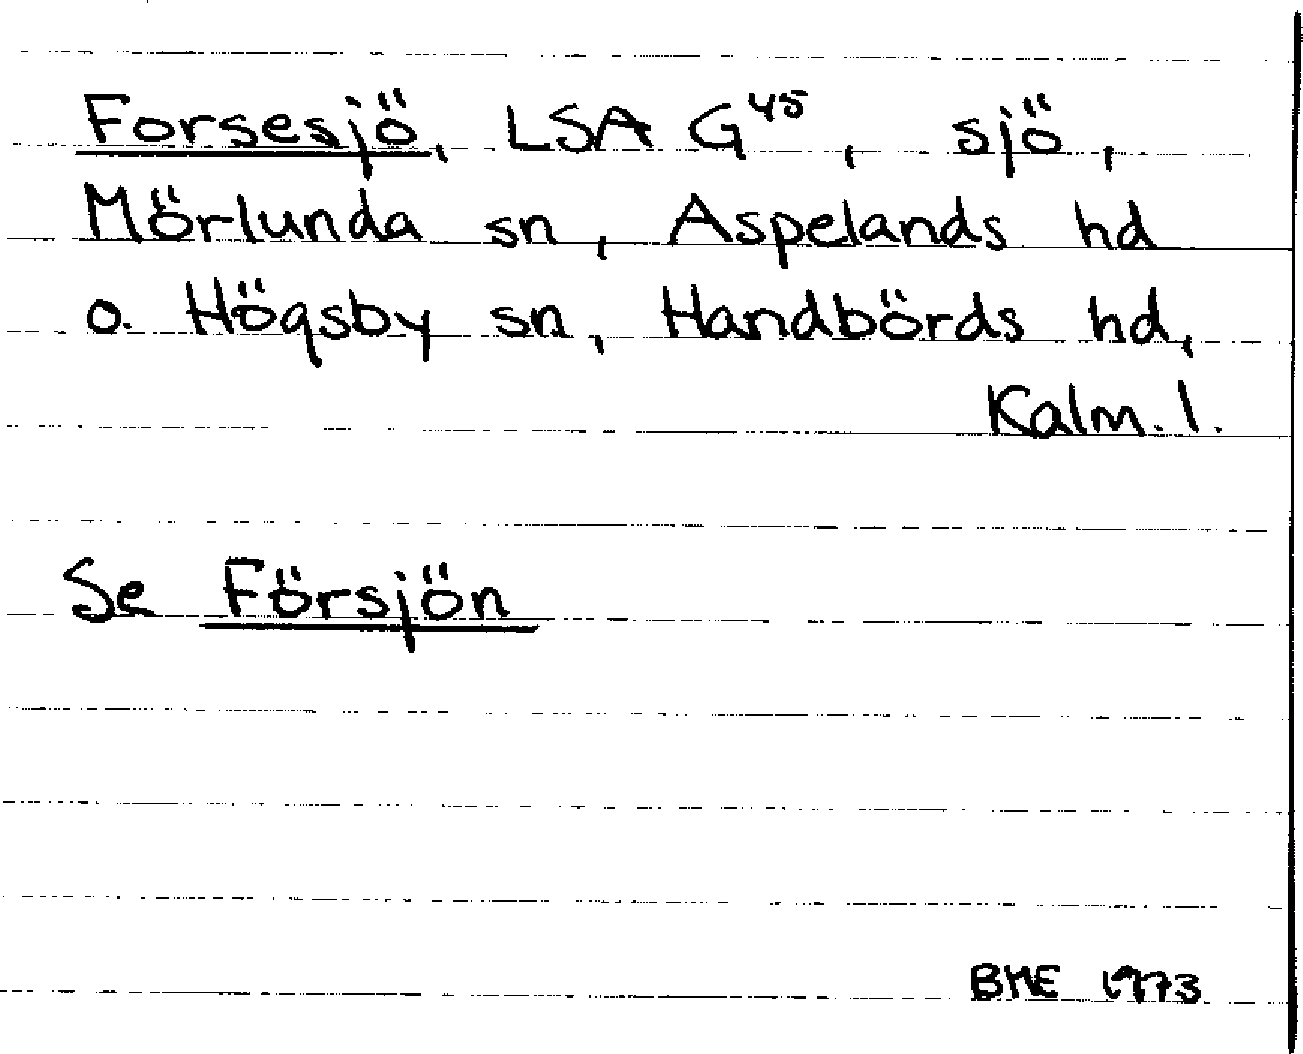 Forsesjö, LSA G⁴⁵, sjö,
Mörlunda sn, Aspelands hd
o. Högsby sn, Handbörds hd,
Kalm. l.
Se Försjön
BME 1973